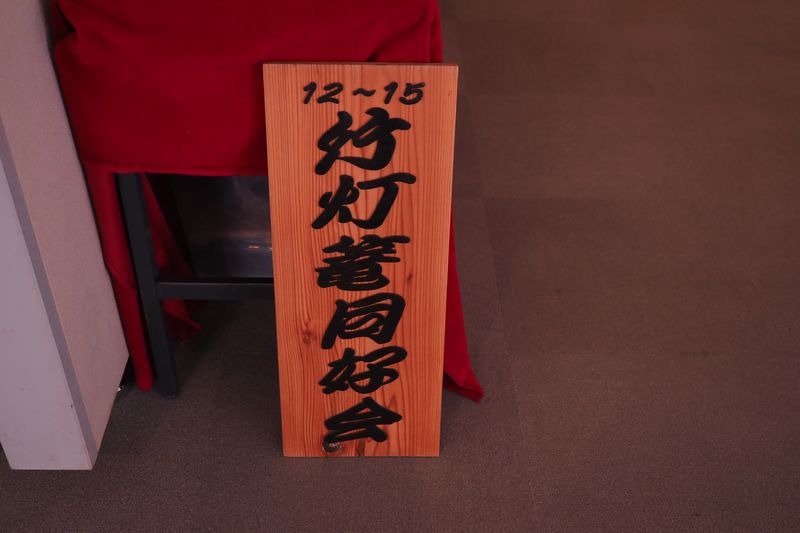 12~15
竹灯篭同好会